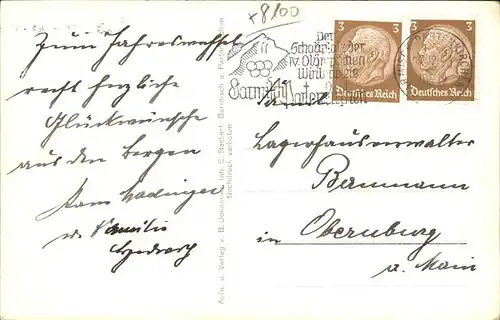 +8100
Zum Jahreswechsel
recht herzliche
Glückwünsche
aus den Bergen
u. Familie
Aufn. u. Verlag v. B. Johannes, Inh. E. Backert, Garmisch u. Partenkirchen.
Nachdruck verboten
Der
Schauplatz der
IV. Olympischen
Winterspiele
Garmisch
Partenkirchen
3
Deutsches Reich
3
Deutsches Reich
Familie
Lagerhausverwalter
Baumann
in Obernburg
a. Main